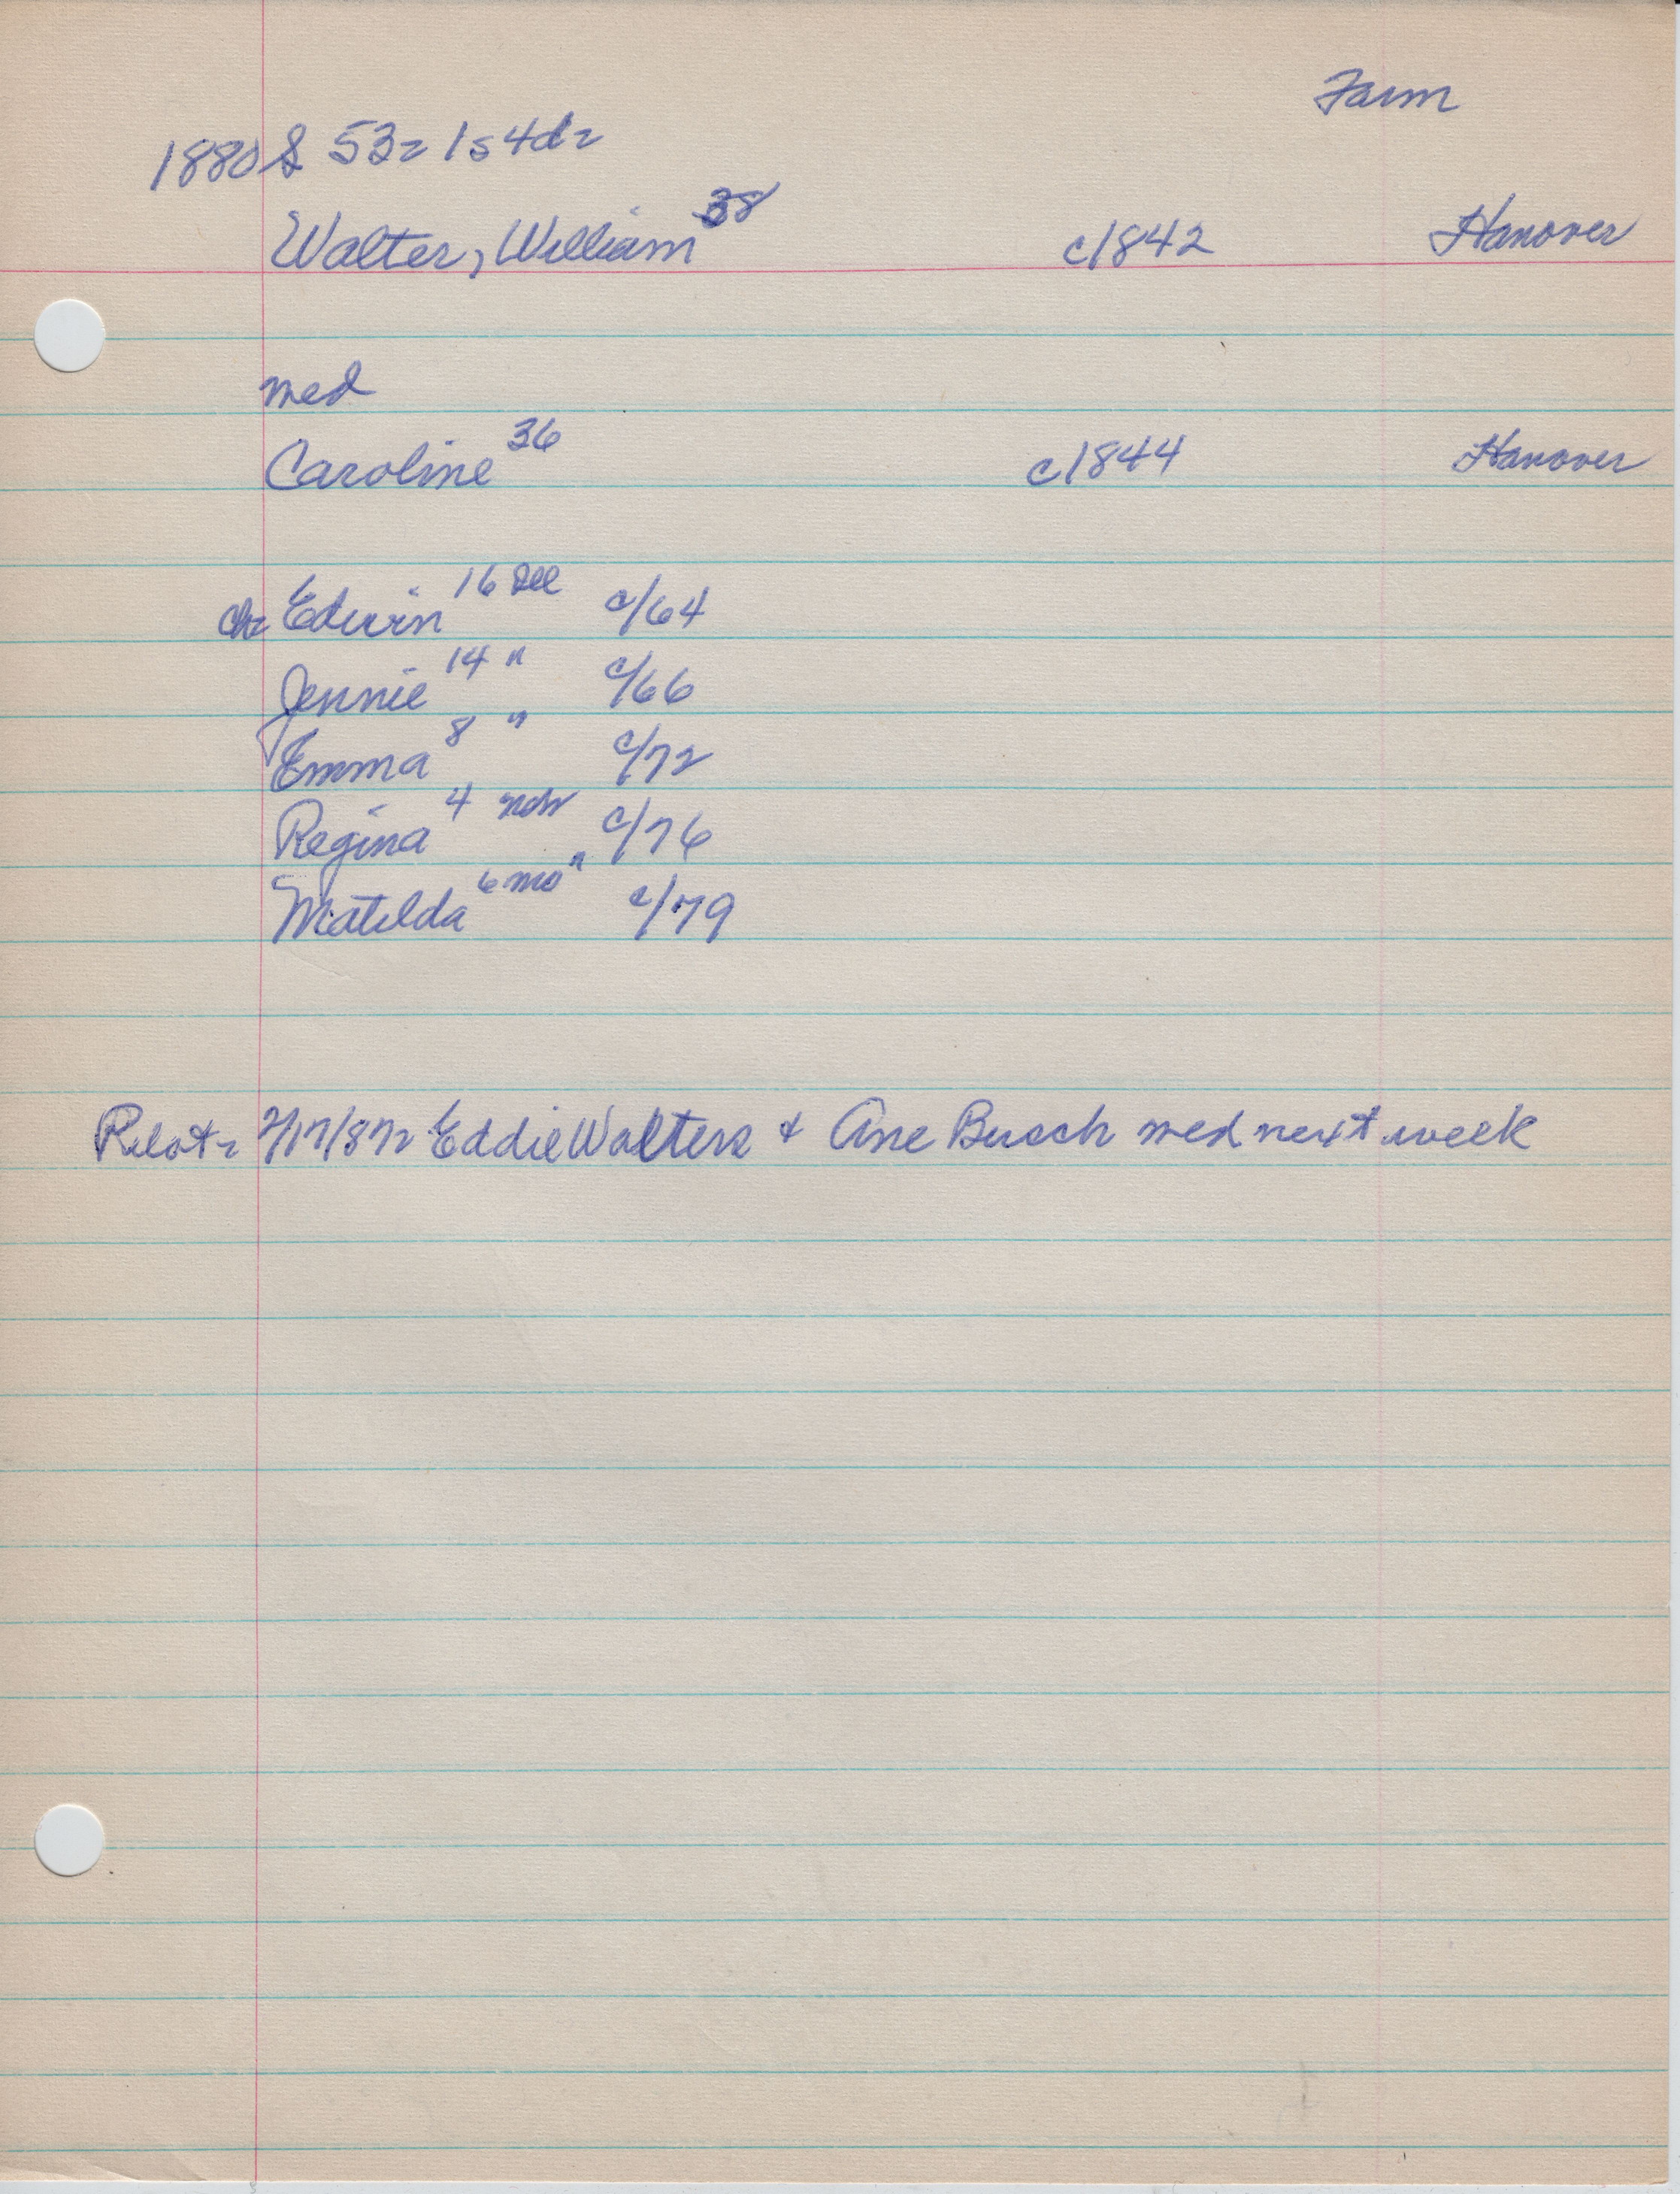 Farm
1880 S 53= 1s4d=
Walter, William 38 c1842 Hanover
med
Caroline 36 c1844 Hanover
ch= Edwin 16 Ill c/64
Jennie 14 " c/66
Emma 8 " c/72
Regina 4 c/76
Matilda 6 mo " c/79
Relat= 2/17/87= Eddie Walters + Ane Busch med next week